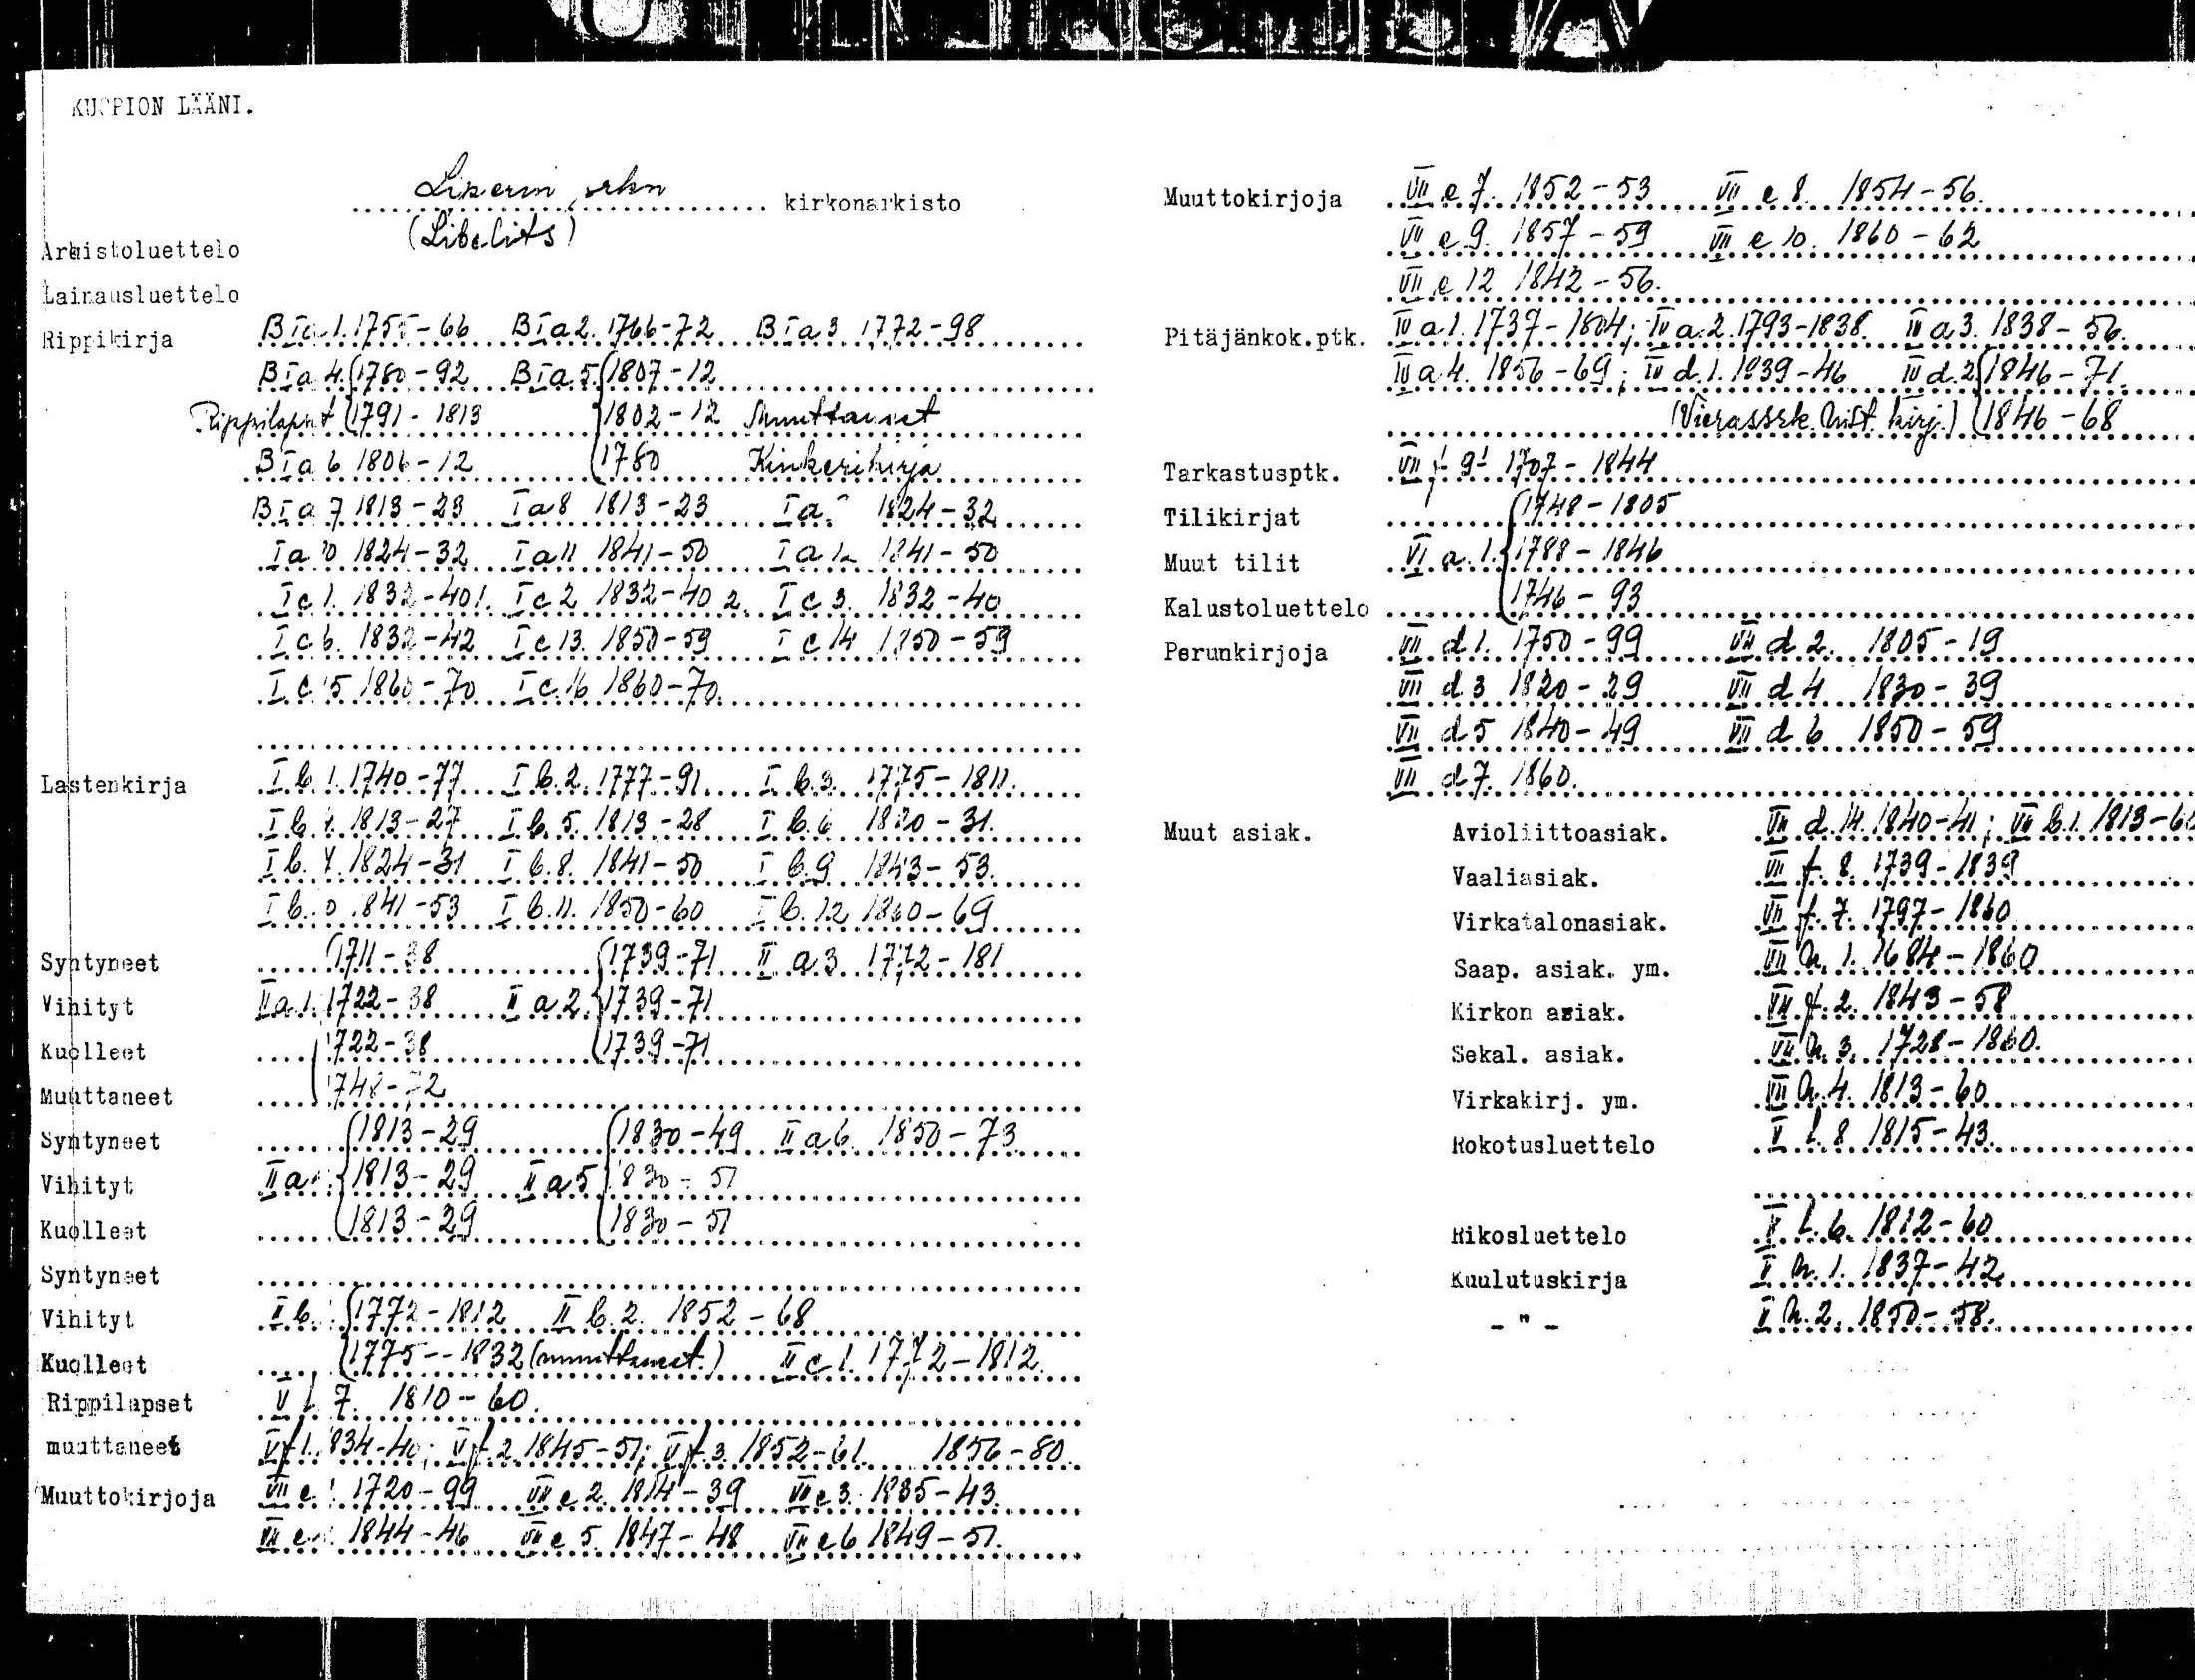 KUOPION LÄÄNI.
Liperin srkn kirkonarkisto
(Libelits)
Arkistoluettelo
Lainausluettelo
Rippikirja B I a 1. 1755-66 B I a 2. 1766-72 B I a 3 1772-98
B I a 4. 1780-92 B I a 5. 1807-12
Rippilapset 1791-1813 1802-12 Muuttaneet
B I a 6 1806-12 1780 Kinkerikirja
B I a 7 1813-23 I a 8 1813-23 I a 1824-32
I a 10 1824-32 I a 11 1841-50 I a 12 1841-50
I c 1. 1832-40 1. I c 2 1832-40 2. I c 3. 1832-40
I c 6. 1832-42 I c 13. 1850-59 I c 14 1850-59
I c 15 1860-70 I c 16 1860-70.
Lastenkirja I b. 1. 1740-77 I b. 2. 1777-91. I b. 3. 1775-1811.
I b. 4. 1813-27 I b. 5. 1813-28 I b. 6 1820-31.
I b. 7. 1824-31 I b. 8. 1841-50 I b. 9 1843-53.
I b. 10 1841-53 I b. 11. 1850-60 I b. 12 1860-69
Syntyneet 1711-38 1739-71 II a 3 1772-181
Vihityt II a 1. 1722-38 II a 2. 1739-71
Kuolleet 1722-38 1739-71
Muuttaneet 1748-72
Syntyneet 1813-29 1830-49 II a 6. 1850-73
Vihityt II a 1813-29 II a 5 1830-51
Kuolleet 1813-29 1830-51
Syntyneet
Vihityt II b. 1772-1812 II b. 2. 1852-68
Kuolleet 1775--1832 (muuttaneet.) II c 1. 1772-1812.
Rippilapset V f. 7. 1810-60.
muuttaneet V f 1. 1834-40; V f. 2 1845-51; V f. 3 1852-61. 1856-80.
Muuttokirjoja VII e 1 1720-99 VII e 2. 1814-39 VII e 3. 1835-43.
VII e 1844-46 VII e 5. 1847-48 VII e 6 1849-51.
Muuttokirjoja VII e 7. 1852-53 VII e 8. 1854-56.
VII e 9. 1857-59 VII e 10. 1860-62
VII e 12 1842-56.
Pitäjänkok.ptk. IV a 1. 1737-1804; IV a. 2. 1793-1838. IV a 3. 1838-56.
IV a 4. 1856-69; IV d. 1. 1839-46 IV d. 2. 1846-71.
(Vierassrk. hist. kirj.) 1846-68
Tarkastusptk. VII f 9 1707-1844
Tilikirjat 1748-1805
Muut tilit VI a. 1. 1788-1846
Kalustoluettelo 1746-93
Perunkirjoja VII d 1. 1750-99 VII d 2. 1805-19
VII d 3 1820-29 VII d 4 1830-39
VII d 5 1840-49 VII d 6 1850-59
VII d 7. 1860.
Muut asiak. Avioliittoasiak. VII d. 14. 1840-41; VII b. 1. 1813-60
Vaaliasiak. VII f. 8. 1739-1839
Virkatalonasiak. VII f. 7. 1797-1860
Saap. asiak. ym. VII h. 1. 1684-1860
Kirkon asiak. VII f. 2. 1843-58
Sekal. asiak. VII h. 3. 1728-1860.
Virkakirj. ym. VII h. 4. 1813-60
Rokotusluettelo V f. 8 1815-43.
Rikosluettelo V f. 6. 1812-60
Kuulutuskirja V h. 1. 1837-42
- " - V h. 2. 1850-58.